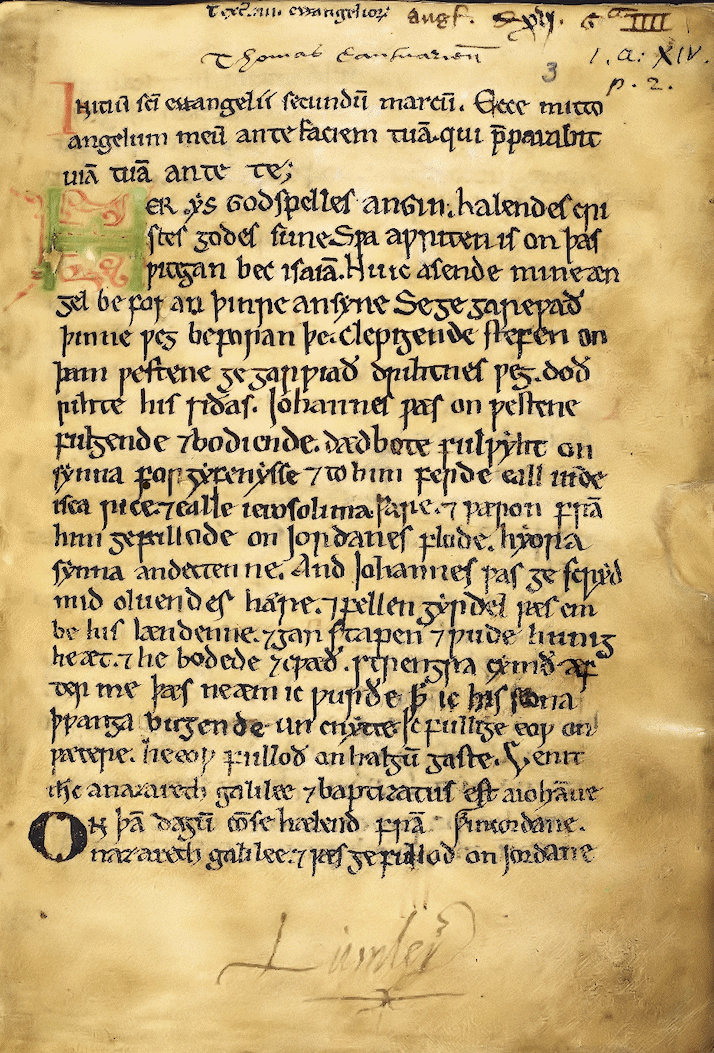 Text. .iiii. ewangeliorꝝ aug͞s. xvi. G͞a IIII
Thomas Cantuarien̄ 3 1. A. XIV.
p. 2.
Initiū sc̄i ewangelii secundū marcū. Ecce mitto
angelum meū ante faciem tuā. qui p̄parabit
uiā tuā ante te;
HER ẏS Godspelles angin. halendes cri
stes godes sune. Spa apriten is on þas
pitegan bec isaiā. Nu ic asende mine æn
gel be for an þinre ansyne. Se ge garepað
þinne peg beforan þe. clepigende stefen on
þam pestene ge garpiað drihtnes peg. doð
rihte his sidas. Iohannes pas on pestene
fulgende ⁊ bodiende. dædbote fulpyht on
synna forgyfenysse ⁊ to him ferde eall iude
isca rice. ⁊ ealle ierosolima pare. ⁊ pæron frā
him gefullode on Iordanes flode. hyora
synna andettenne. And Iohannes pas ge scryd
mid oluendes hære. ⁊ fellen gyrdel pæs em
be his lændenne. ⁊ garstapen ⁊ pude hunig
he æt. ⁊ he bodede ⁊ cpæð. strengra cymð æf
ter me þæs ne æm ic purðe ꝥ ic his scona
þpanga bugende un cnytte. Ic fullige eop on
pætere. he eop fullod on halgū gaste. Venit
ihc anazareth galilee ⁊ baptizatus est a iohāne
ON þā dagū cōse hælend frā in iordane.
nazareth galilee. ⁊ pæs gefullod on Iordane
Lumley